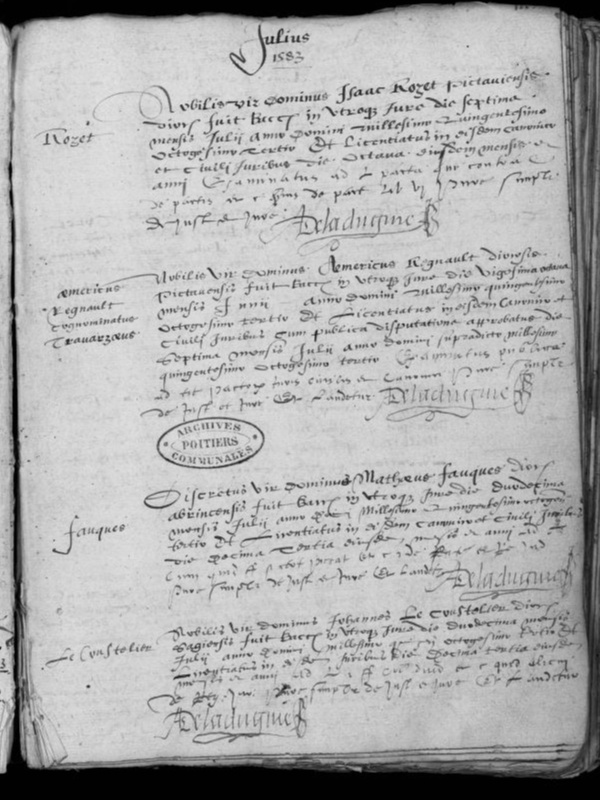 Julius
1583
Rozet
Nobilis vir Dominus Isaac Rozet Pictaviensis
dioces fuit bacc in utroq Jure die septima
mensis Julii anno Domini millesimo quingentesimo
octogesimo tertio Et Licentiatus in eisdem canonico
et Civili Juribus die octava eiusdem mensis et
anni Examinatus ad
de Just et Jure
Deladugnie
Americus
Regnault
Cognominatus
Travarzaeus
Nobilis vir Dominus Americus Regnault diocesis
Pictavensis fuit bacc in utroq Jure die vigesima octava
mensis Junii anno Domini millesimo quingentesimo
octogesimo tertio Et Licentiatus in eisdem Canonico et
Civili Juribus Cum publica disputatione approbatus die
Septima mensis Julii anno Domini supradicto millesimo
quingentesimo octogesimo tertio Examinatus publice
de Just et Jure Et Laudetur
Deladugnie
ARCHIVES
POITIERS
COMMUNALES
Fauques
Discretus vir Dominus Mathaeus Fauques dioces
abrincensis fuit bacc in utroq Jure die duodecima
mensis Julii anno Dom Millesimo quingentesimo octogesi
tertio Et Licentiatus in eisdem Canonico et Civili Juribus
die decima Tertia eiusdem mensis et anni
Jure simplr de Just et Jure Et Laudetr
Deladugnie
Le Coustelier
Nobilis vir Dominus Johannes Le Coustelier dioces
Sagiensis fuit bacc in utroq Jure die duodecima mensis
Julii anno Domini millesimo octogesimo tertio Et
Licentiatus in juribus die decima tertia eiusdem
mensis et anni
Jure simplr de Just et Jure Et Laudetur
Deladugnie